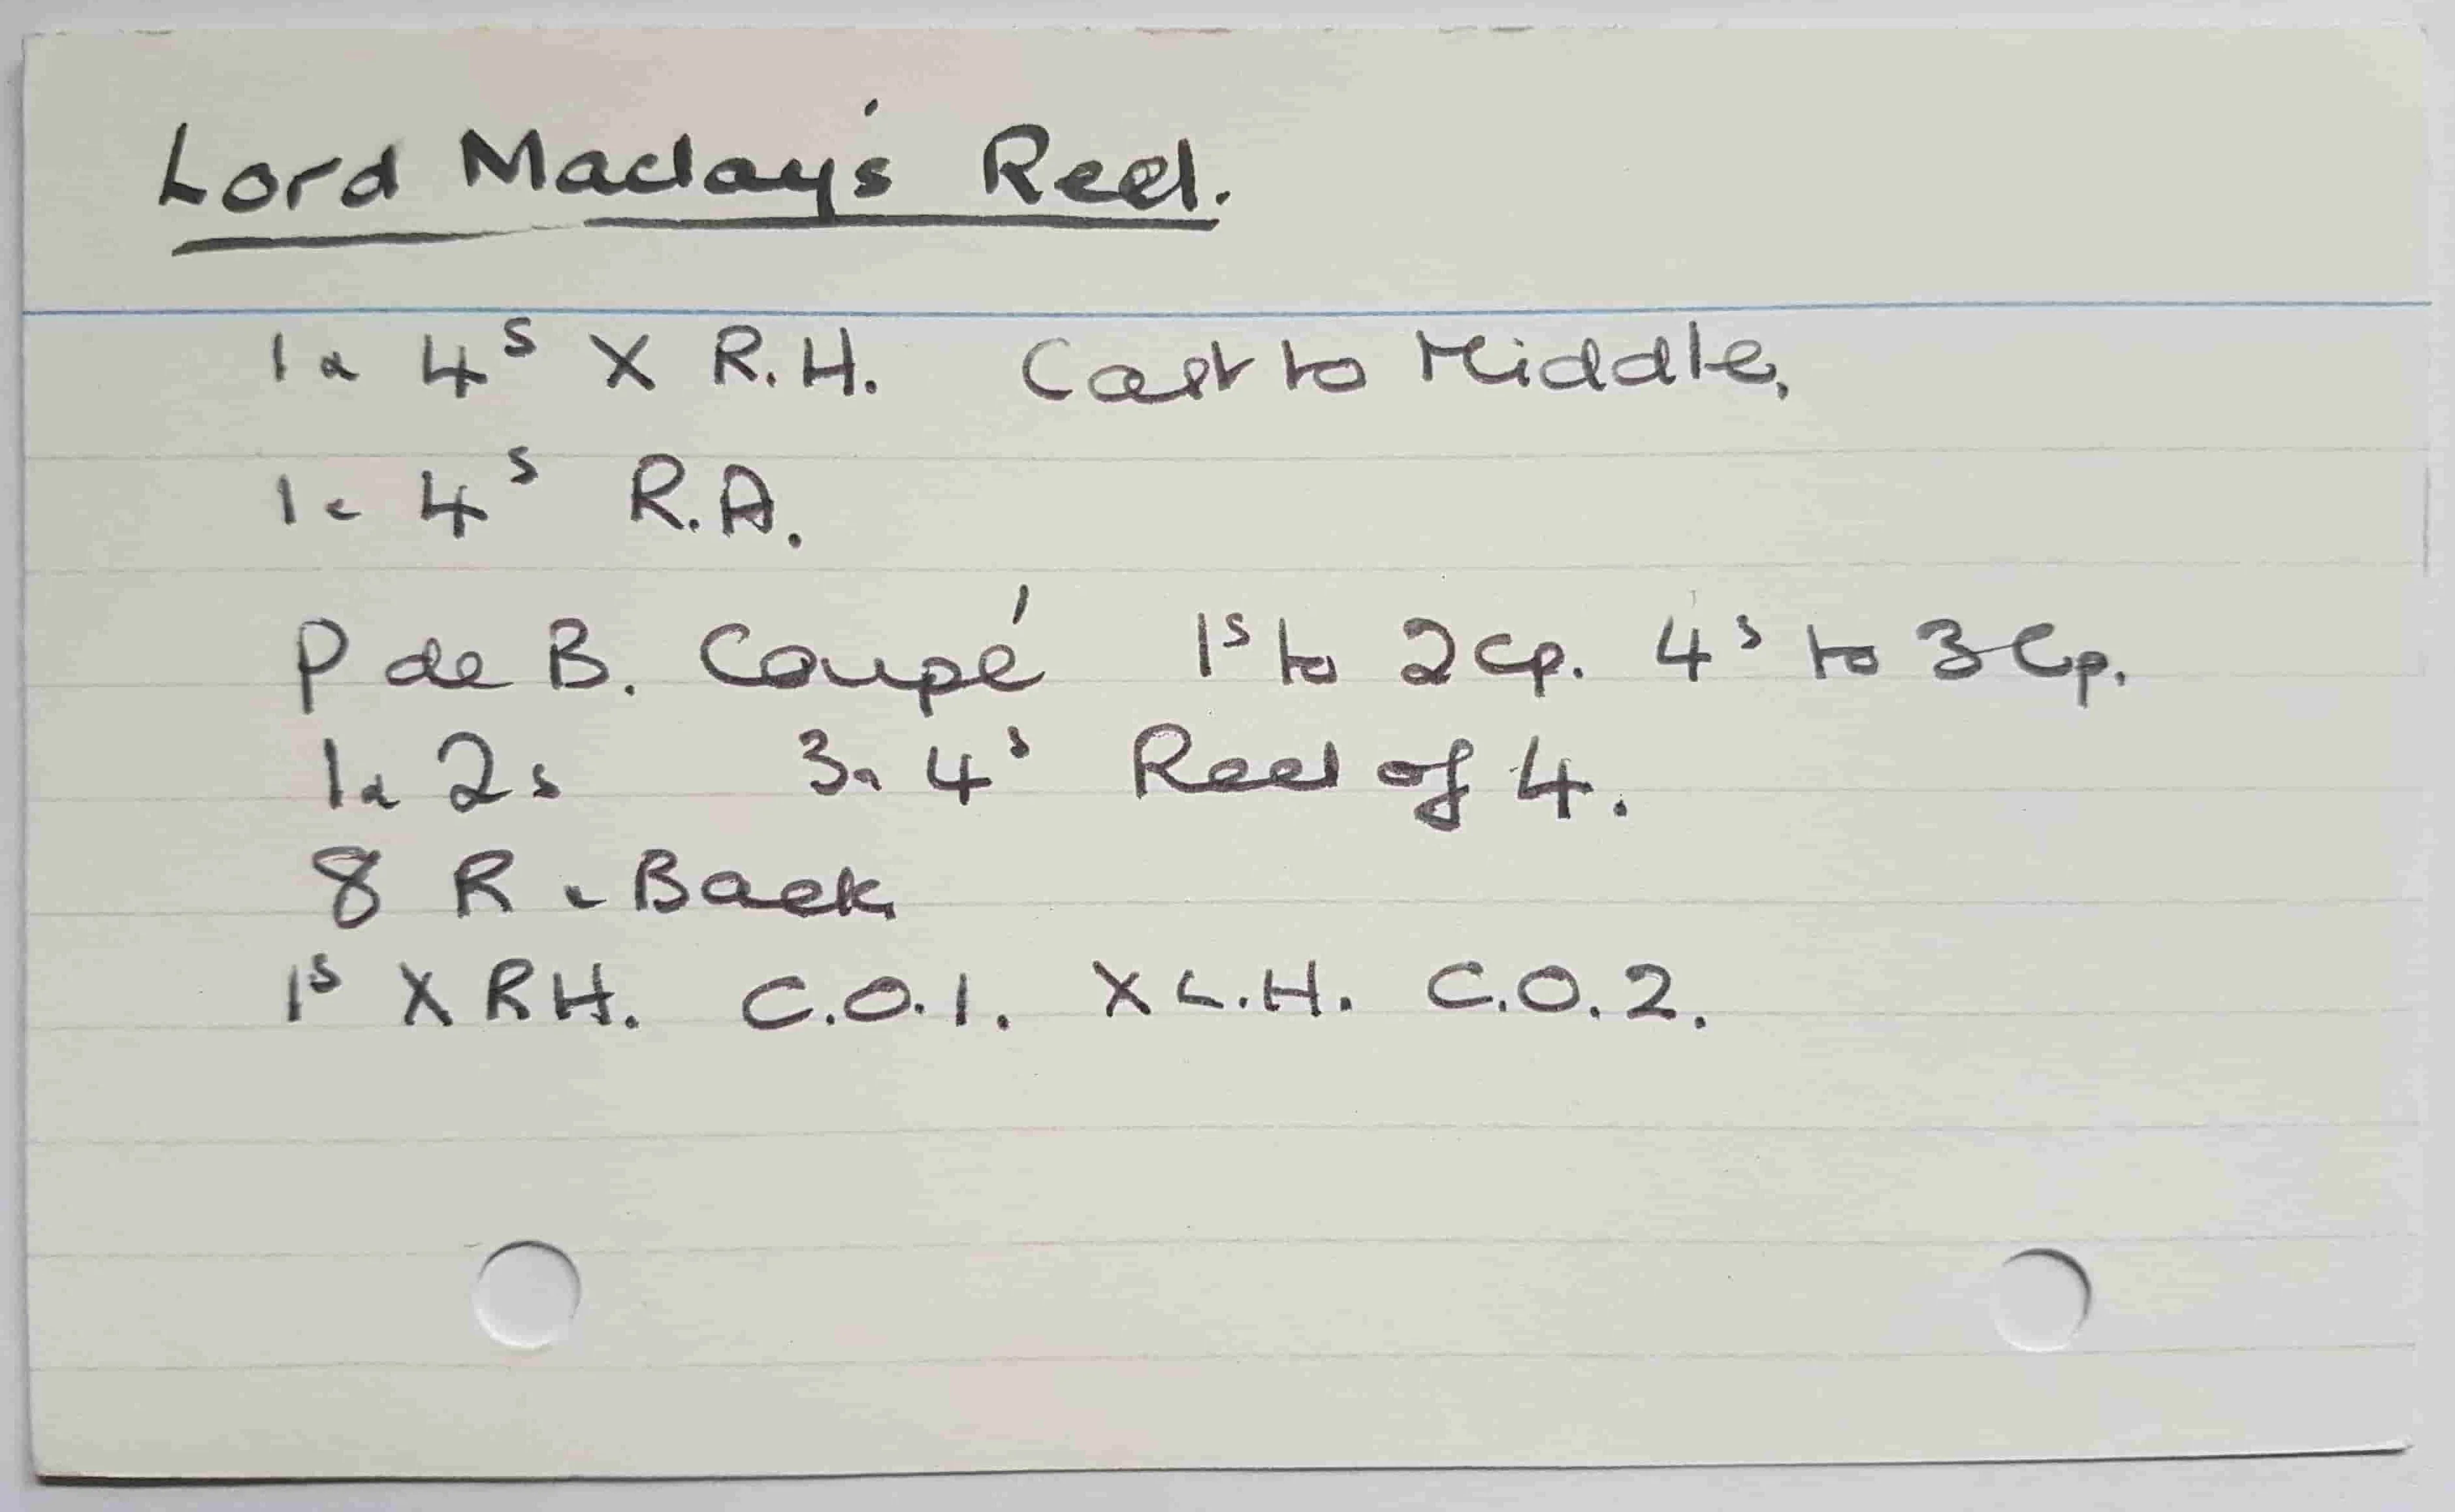 Lord Maclay's Reel.
1 & 4s X R.H. Cast to Middle.
1 & 4s R.A.
P de B. Coupé 1s to 2 cp. 4s to 3 Cp.
1 & 2s 3 & 4s Reel of 4.
8 R & Back
1s X RH. C.O.1. X L.H. C.O.2.